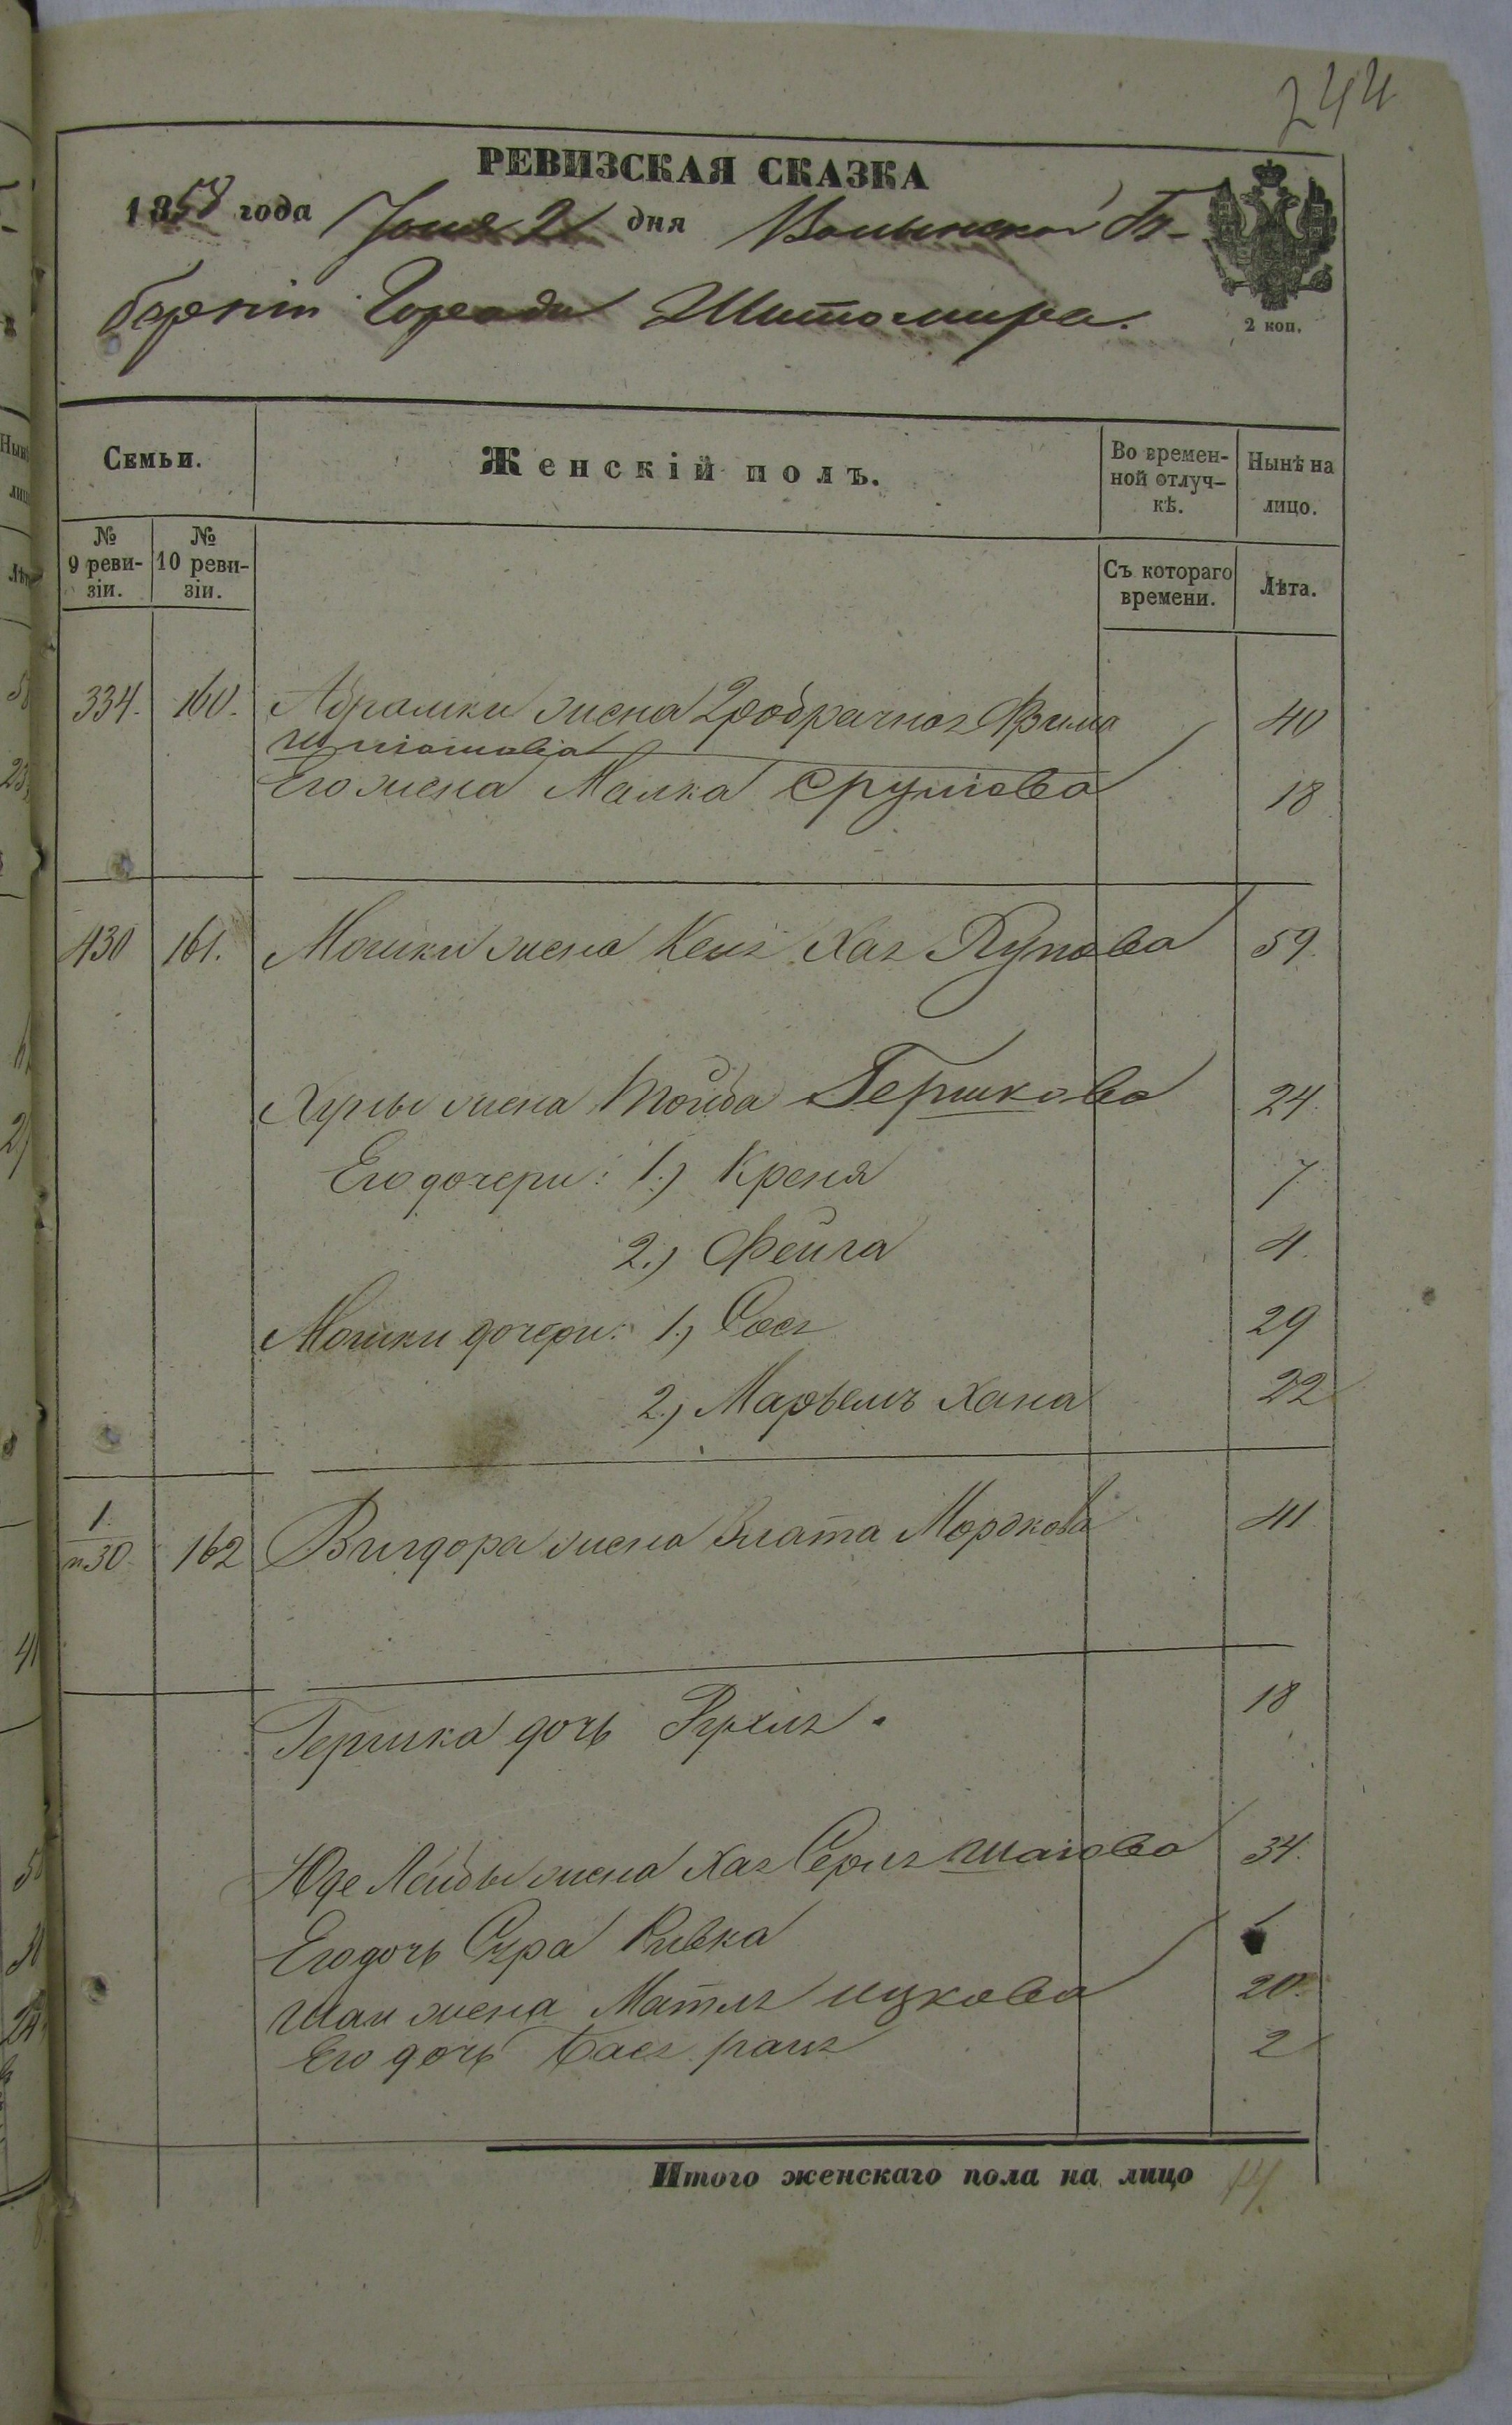 244
РЕВИЗСКАЯ СКАЗКА
1858 года Іюня 2 дня Волынской Гу-
берніи Города Житомира.
2 коп.
Семьи.
Женскій полъ.
Во времен-
ной отлуч-
кѣ.
Нынѣ на
лицо.
№
9 реви-
зіи.
№
10 реви-
зіи.
Съ котораго
времени.
Лѣта.
334. 160. Абрамки жена 2обрачная Фрима 40
Его жена Малка Срулiова 18
430 161. Мошки жена Кейля Хая 59.
Хуны жена Тойба Гершкова 24.
Его дочери: 1.) Креня 7
2.) Фейга 4.
Мошки дочери: 1.) Сося 29
2.) Марьемъ Хана 22
1.
п 30 162 Вигдора жена Злата Мордкова 41
Гершка дочь Рухля. 18
Юде Лейбы жена Хая Серля Шаіова 34.
Его дочь Сура Ривка
Шаи жена Матля Ицкова 20.
Его дочь Бася 2
Итого женскаго пола на лицо 14.